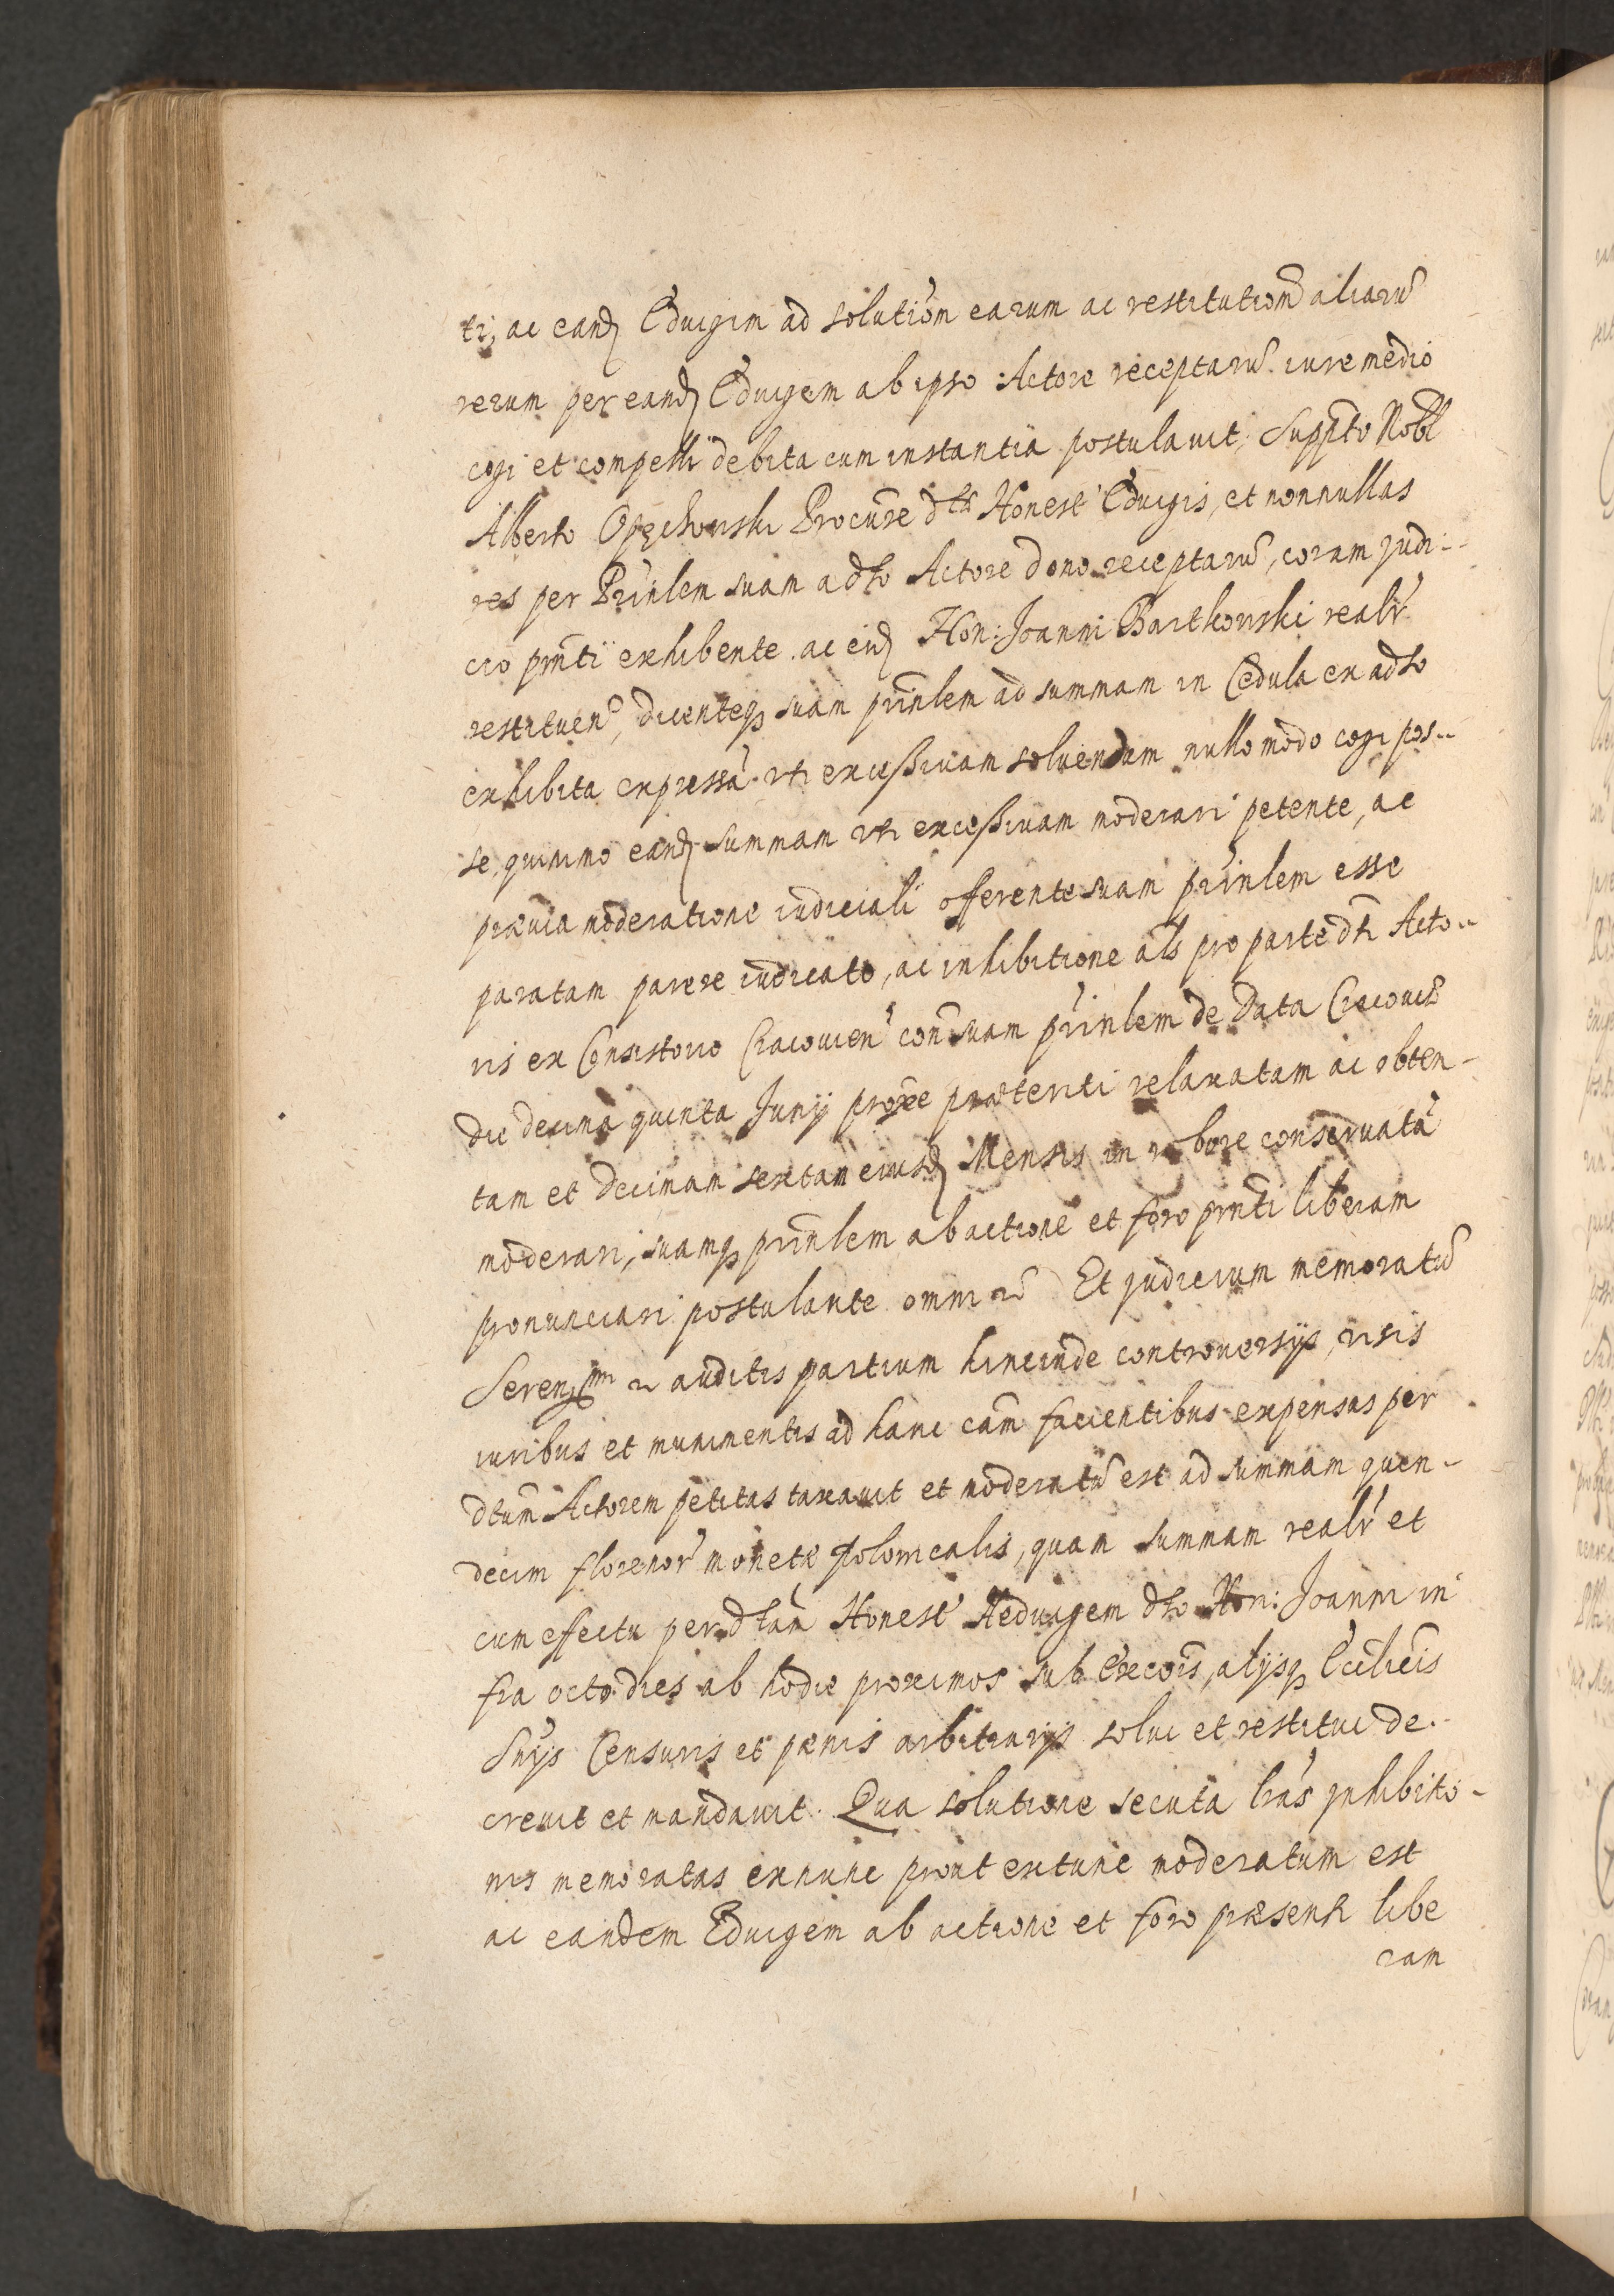 ti, ac eand Eduigim ad solutiom earum ac restitutiom aliaru
rerum per eand Eduigem ab ipso Actore receptaru. iure medio
cogi et compelli debita cum instantia postulauit, Suppto Nobl
Alberto Opęchowski Procure dta Honest Eduigis, et nonnullas
res per Prinlem suam a dto Actore dono receptaru, coram judi-
cio pnti exhibente. ac eid Hon: Joanni Bartkowski realr
restituen, dicenteq suam prinlem ad summam in Cedula ex adto
exhibita expressa. uti excessiuam soluendam nullo modo cogi pos-
se, quinimo eand summam uti excessiuam moderari petente, ac
præuia moderatione iudiciali offerente suam prinlem esse
paratam parere iudicato, ac inhibitione als pro parte dti Acto-
ris ex Consistorio Cracouien con suam prinlem de Data Cracouiæ
die decima quinta Junij proxe præteriti relaxatam ac obten-
tam et decimam sextam eiusd Mensis in robore conseruata
moderari, suamq prinlem ab actione et foro pnti liberam
pronunciari postulante omni Et judicium memoratu
auditis partium hincinde controuersijs, uisis
iuribus et munimentis ad hanc cam facientibus expensas per
dtum Actorem petitas taxauit et moderatu est ad summam quen-
decim florenor monetæ polonicalis, quam summam realr et
cum effectu per dtam Honest Heduigem dto Hon: Joanni in
fra octo dies ab hodie proximos sub Excois, alijsq Ecclicis
Snijs Censuris et pænis arbitrarijs solui et restitui de-
creuit et mandauit. Qua solutione secuta lras inhibito-
nis memoratas exnunc prout extunc moderatum est
ac eandem Eduigem ab actione et foro præsenti libe
ram